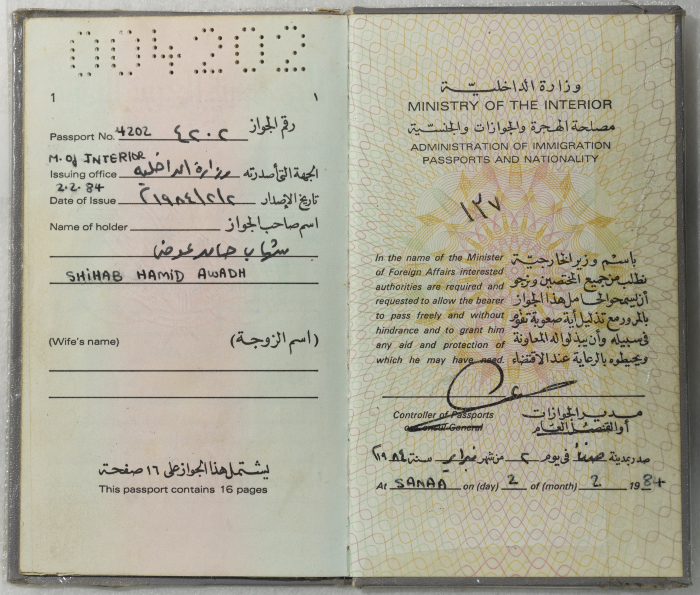 004202
1 ١
Passport No. 4202 ٤٢٠٢ رقم الجواز
M. of INTERIOR
Issuing office وزارة الداخلية الجهة التي أصدرته
2.2.84
Date of Issue ٢/٢/١٩٨٤م تاريخ الإصدار
Name of holder اسم صاحب الجواز
شهاب حامد عوض
SHIHAB HAMID AWADH
(Wife's name) (اسم الزوجة)
يشتمل هذا الجواز على ١٦ صفحة
This passport contains 16 pages
وزارة الداخلية
MINISTRY OF THE INTERIOR
مصلحة الهجرة والجوازات والجنسية
ADMINISTRATION OF IMMIGRATION
PASSPORTS AND NATIONALITY
١٣٧
In the name of the Minister
of Foreign Affairs interested
authorities are required and
requested to allow the bearer
to pass freely and without
hindrance and to grant him
any aid and protection of
which he may have need.
باسم وزير الخارجية
نطلب من جميع المختصين ونرجو
أن يسمحوا لحامل هذا الجواز
بالمرور مع تذليل أية صعوبة تقوم
في سبيله وأن يبذلوا له المعاونة
ويحيطوه بالرعاية عند الاقتضاء
Controller of Passports مدير الجوازات
or Consul General أو القنصل العام
صدر بمدينة صنعاء في يوم ٢ من شهر فبراير سنة ١٩٨٤م
At SANAA on (day) 2 of (month) 2 1984